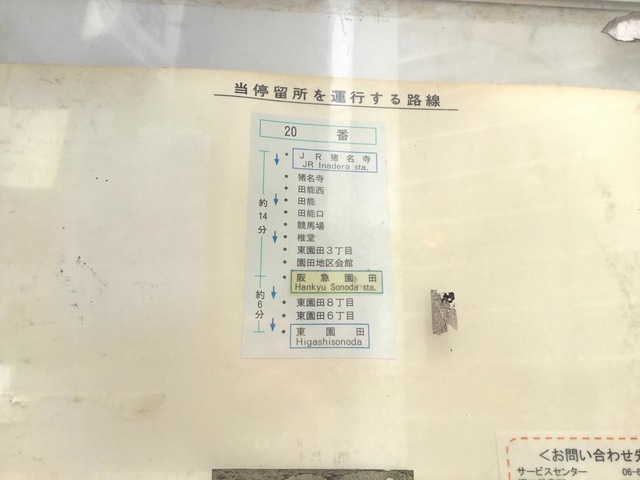 当停留所を運行する路線
20 番
JR猪名寺
JR Inadera sta.
猪名寺
田能西
田能
田能口
競馬場
椎堂
東園田3丁目
園田地区会館
阪急園田
Hankyu Sonoda sta.
東園田8丁目
東園田6丁目
東園田
Higashisonoda
約14分
約6分
<お問い合わせ先
サービスセンター 06-6